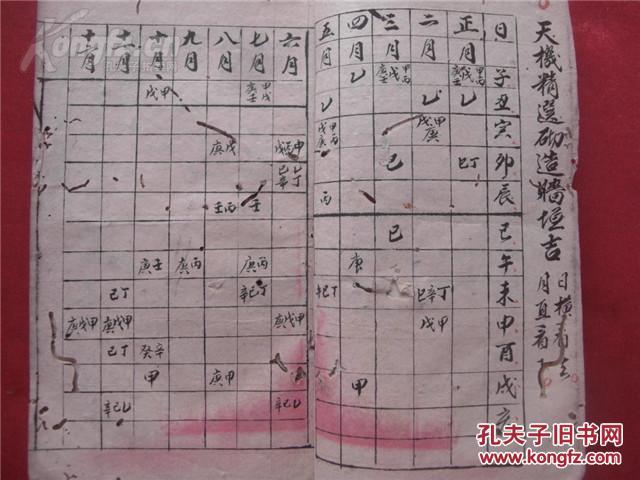 天機精選砌造牆垣吉
日橫看
月直看
日 子 丑 寅 卯 辰 巳 午 未 申 酉 戌 亥
正月 乙 巳丁
二月 乙 戊甲庚 己辛丁 戊甲
三月 己 己
四月 乙 庚 甲
五月 乙 丙 辛己丁
六月 己乙辛丁 庚戊甲 辛己乙
七月 甲戊庚壬 壬 庚丙 辛己丁
八月 庚戊 壬丙 庚甲
九月 庚丙
十月 戊甲 庚壬 癸辛 甲
十一月 己丁 庚戊甲 己丁 辛己乙
十二月 庚戊甲
孔夫子旧书网
www.kongfz.com